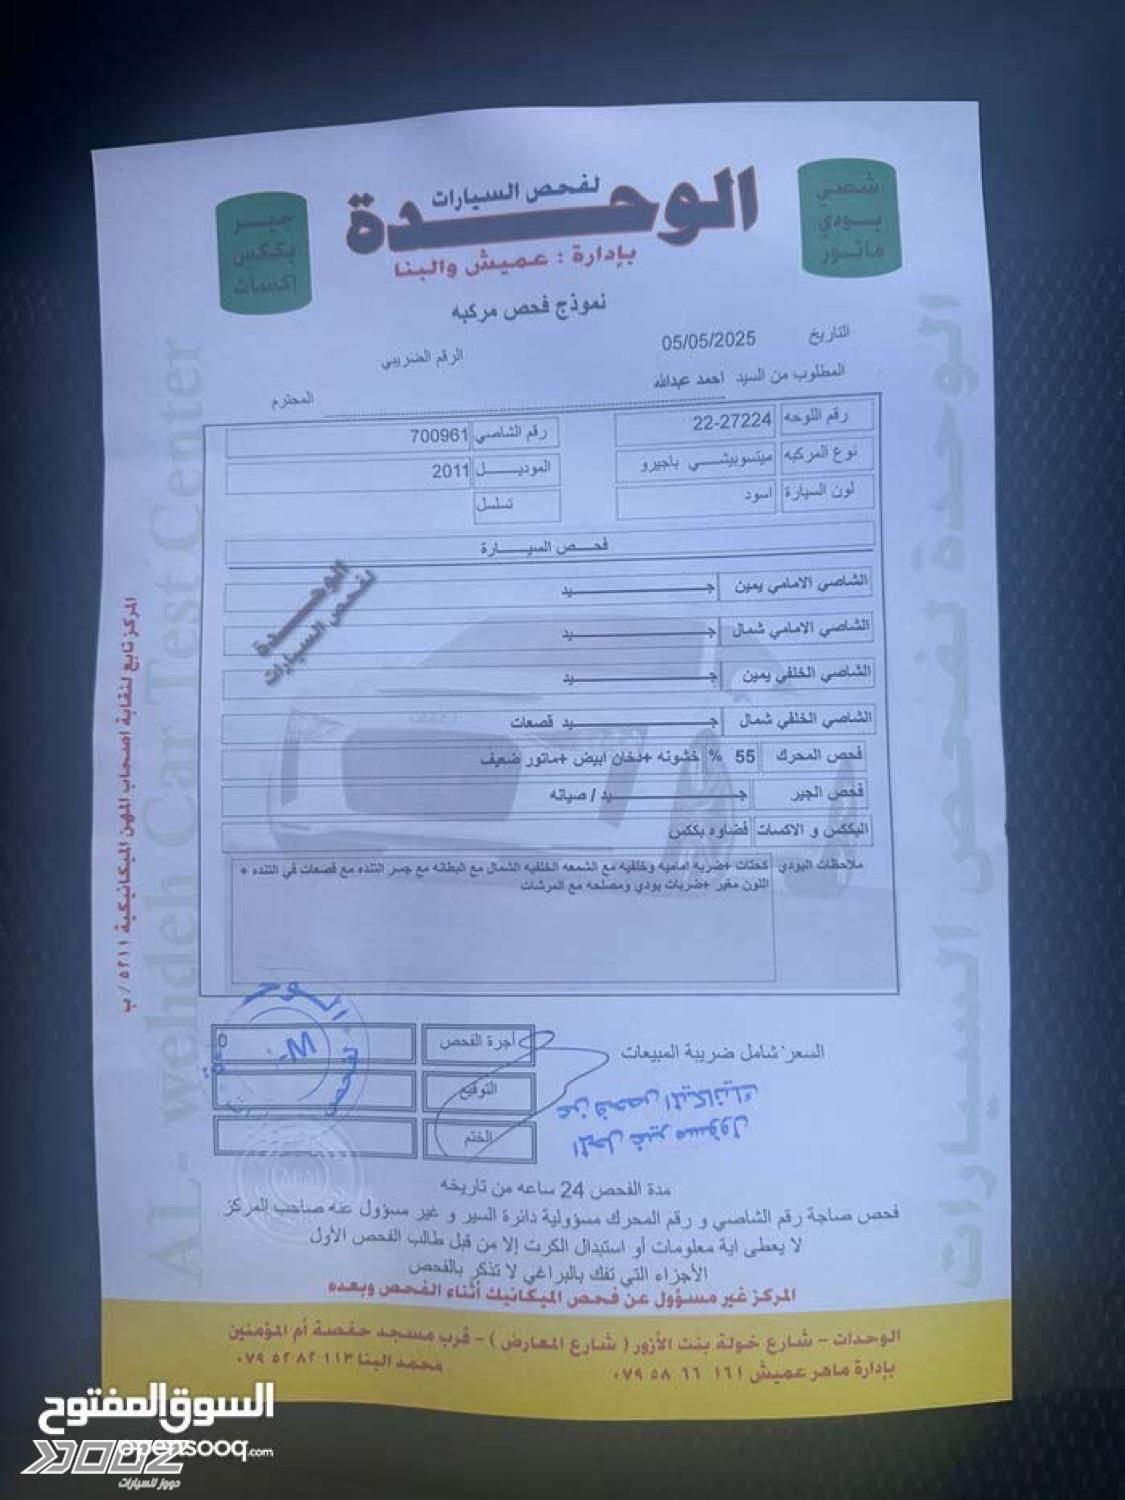 شصي
بودي
ماتور
لفحص السيارات
الوحدة
بإدارة : عميش والبنا
جير
بككس
إكسات
نموذج فحص مركبه
التاريخ 05/05/2025 الرقم الضريبي
المطلوب من السيد احمد عبدالله المحترم
رقم اللوحه 22-27224 رقم الشاصي 700961
نوع المركبه ميتسوبيشي باجيرو الموديل 2011
لون السيارة اسود تسلسل
فحص السيارة
الشاصي الامامي يمين جيد
الشاصي الامامي شمال جيد
الشاصي الخلفي يمين جيد
الشاصي الخلفي شمال جيد قصعات
فحص المحرك 55 % خشونه +دخان ابيض +ماتور ضعيف
فحص الجير جيد / صيانه
البككس و الاكسات فضاوه بككس
ملاحظات البودي كحتات +ضربه اماميه وخلفيه مع الشمعه الخلفيه الشمال مع البطانه مع جسر التنده مع قصعات في التنده +
اللون مغير +ضربات بودي ومصلحه مع المرشات
الوحدة
لفحص السيارات
السعر شامل ضريبة المبيعات
أجرة الفحص 0
التوقيع
الختم
المحل غير مسؤول
عن فحص الميكانيك
مدة الفحص 24 ساعه من تاريخه
فحص صاجة رقم الشاصي و رقم المحرك مسؤولية دائرة السير و غير مسؤول عنه صاحب المركز
لا يعطى اية معلومات أو استبدال الكرت إلا من قبل طالب الفحص الأول
الأجزاء التي تفك بالبراغي لا تذكر بالفحص
المركز غير مسؤول عن فحص الميكانيك أثناء الفحص وبعده
الوحدات - شارع خولة بنت الأزور ( شارع المعارض ) - قرب مسجد حفصة أم المؤمنين
بإدارة ماهر عميش ٠٧٩٥٨ ٦٦ ١٦١ محمد البنا ٠٧٩٥٢٨٢١١٣
المركز تابع لنقابة اصحاب المهن الميكانيكية ٥٢١١ / ب
AL- wehdeh Car Test Center
الوحدة لفحص السيارات
السوق المفتوح
opensooq.com
دووز للسيارات